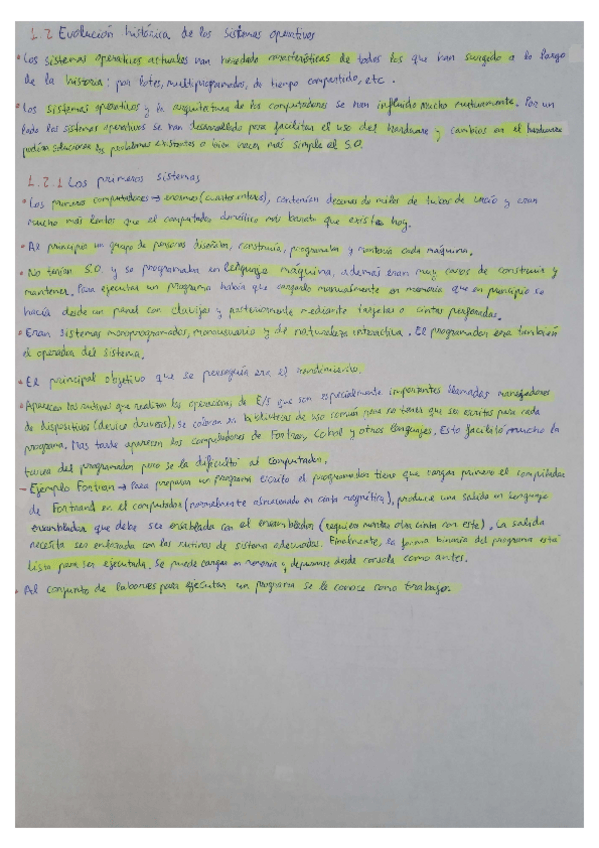 1.2 Evolución histórica de los sistemas operativos
• Los sistemas operativos actuales van heredado características de todos los que han surgido a lo largo
de la historia: por lotes, multiprogramados, de tiempo compartido, etc.
• Los sistemas operativos y la arquitectura de los computadores se han influido mucho mutuamente. Por un
lado los sistemas operativos se han desarrollado para facilitar el uso del hardware y cambios en el hardware
podían solucionar los problemas existentes o bien hacer más simple el S.O.
1.2.1 Los primeros sistemas
• Los primeros computadores → enormes (cuartos enteros), contenían decenas de miles de tubos de vacío y eran
mucho más lentos que el computador doméstico más barato que existe hoy.
• Al principio un grupo de personas diseñaba, construía, programaba y mantenía cada máquina.
• No tenían S.O y se programaba en lenguaje máquina, además eran muy caros de construir y
mantener. Para ejecutar un programa había que cargarlo manualmente en memoria que en principio se
hacía desde un panel con clavijas y posteriormente mediante tarjetas o cintas perforadas.
• Eran sistemas monoprogramados, monousuario y de naturaleza interactiva. El programador era también
el operador del sistema.
• El principal objetivo que se perseguía era el rendimiento.
• Aparecen las rutinas que realizan las operaciones de E/S que son especialmente importantes llamadas manejadores
de dispositivos (device drivers), se colocan en bibliotecas de uso común para no tener que ser escritos para cada
programa. Más tarde aparecen los compiladores de Fortran, Cobol y otros lenguajes. Esto facilitó mucho la
tarea del programador pero se la dificultó al computador.
- Ejemplo Fortran → Para preparar un programa escrito el programador tiene que cargar primero el compilador
de Fortrand en el computador (normalmente almacenado en cinta magnética), produce una salida en lenguaje
ensamblador que debe ser ensamblada con el ensamblador (requiere montar otra cinta con este). La salida
necesita ser enlazada con las rutinas de sistema adecuadas. Finalmente, la forma binaria del programa está
lista para ser ejecutada. Se puede cargar en memoria y depurarse desde consola como antes.
• Al conjunto de labores para ejecutar un programa se le conoce como trabajo.